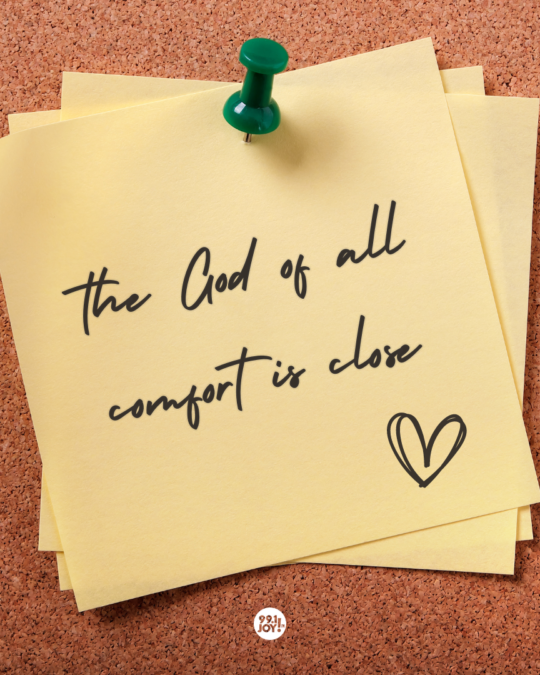 the God of all
comfort is close
99.1
JOY!